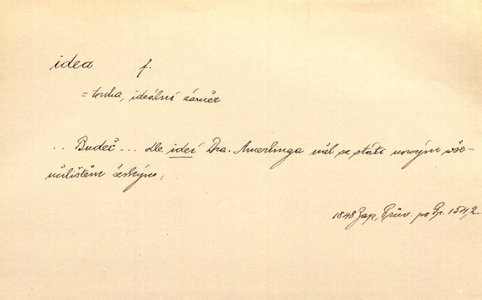 idea f.
= touha, ideální záměr
.. Budeč ... dle ideí Dra. Amerlinga měl se státi novým vše-
učilištěm českým,
1848 Zap, Prův. po Pr. 154,2.